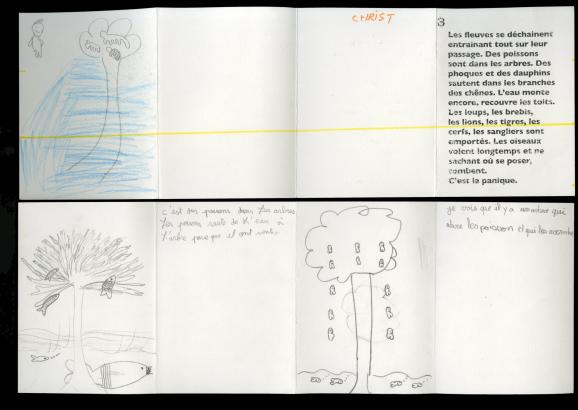 CHRIST
3
Les fleuves se déchainent
entrainant tout sur leur
passage. Des poissons
sont dans les arbres. Des
phoques et des dauphins
sautent dans les branches
des chênes. L'eau monte
encore, recouvre les toits.
Les loups, les brebis,
les lions, les tigres, les
cerfs, les sangliers sont
emportés. Les oiseaux
volent longtemps et ne
sachant où se poser,
tombent.
C'est la panique.
c'est des poissons dans les arbres
les poissons saute de l'eau à
l'arbre parce que il ont
je vois que il y a un arbre qui
les poisson et qui les